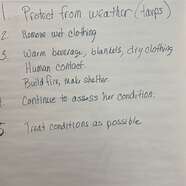 1. Protect from weather (tarps)
2 Remove wet clothing
3. Warm beverage, blankets, dry clothing
Human contact
Build fire, make shelter
4 Continue to assess her condition.
5 Treat conditions as possible